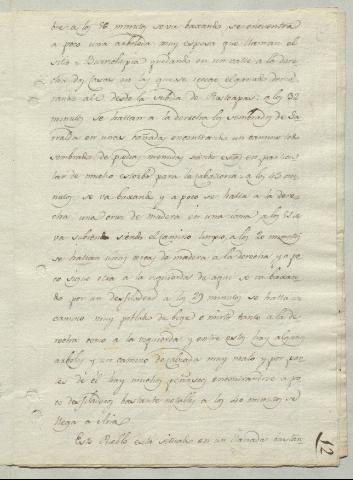 bre: a los 38 minutos se va baxando, se encuentra
a poco una arboleda muy espesa que llaman el
sitio quedando en un valle a la dere-
cha dos Casas en las que se recoge el ganado
desde la subida de a los 32
minutos se hallan a la derecha los sembrados de
en unas cañadas, encontrandose un camino
sembrado de piedras menudas siendo esto en particu-
lar de mucho estorbo para la caballeria: a los 45 mi-
nutos se va baxando y a poco se halla a la dere-
cha una Cruz de madera en una a los
va subiendo siendo el camino limpio, a los 20 minutos
se hallan unas cruces de madera a la derecha y a po-
co sigue otra a la izquierda: de aqui se va baxan-
do por un desfiladero a los 29 minutos se halla el
camino muy poblado de boge o mirto tanto a la de-
recha como a la izquierda y entre esto hay algunos
arboles y un camino de calzada muy malo y por par-
tes de él hay muchos peñascos encontrandose a po-
co desfiladeros bastante notables a los 40 minutos se
llega a
Este Pueblo está situado en un llanada bastan-
12